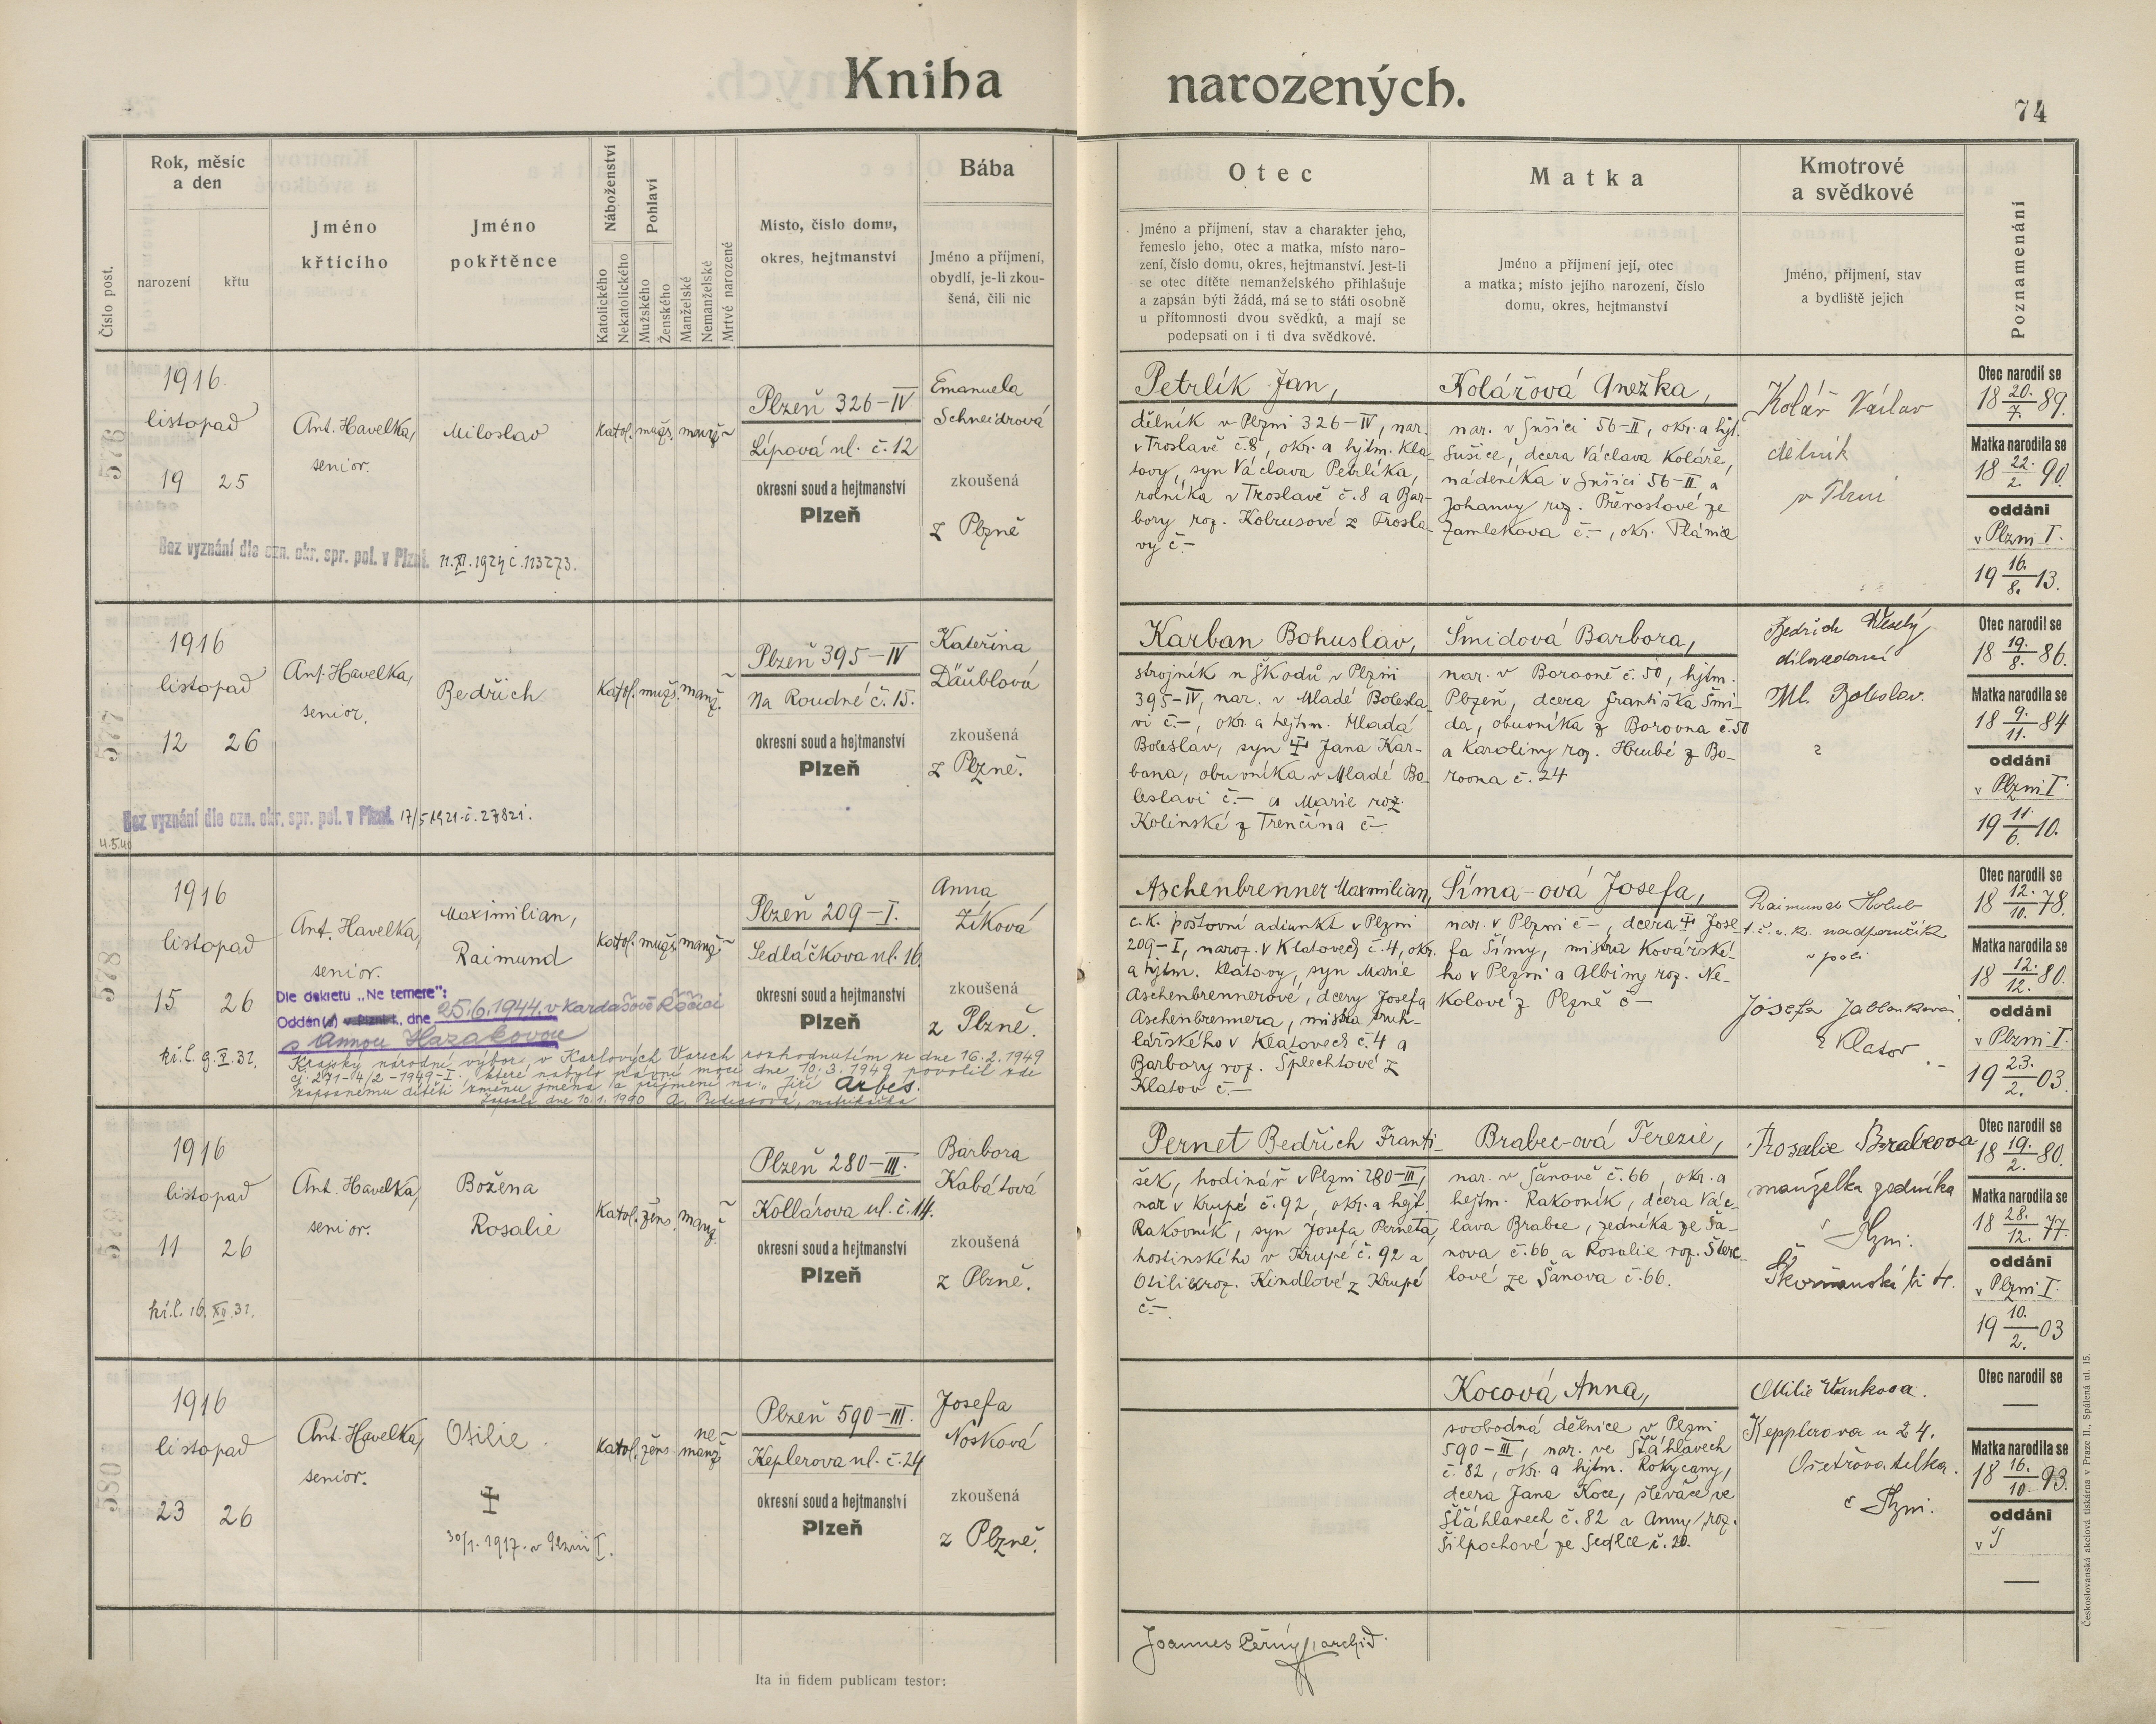 Kniha narozených.
74
Číslo post.
Rok, měsíc
a den
narození
křtu
Jméno
křtícího
Jméno
pokřtěnce
Náboženství
Katolického
Nekatolického
Pohlaví
Mužského
Ženského
Manželské
Nemanželské
Mrtvé narozené
Místo, číslo domu,
okres, hejtmanství
Bába
Jméno a příjmení,
obydlí, je-li zkou-
šená, čili nic
Otec
Jméno a příjmení, stav a charakter jeho,
řemeslo jeho, otec a matka, místo naro-
zení, číslo domu, okres, hejtmanství. Jest-li
se otec dítěte nemanželského přihlašuje
a zapsán býti žádá, má se to státi osobně
u přítomnosti dvou svědků, a mají se
podepsati on i ti dva svědkové.
Matka
Jméno a příjmení její, otec
a matka; místo jejího narození, číslo
domu, okres, hejtmanství
Kmotrové
a svědkové
Jméno, příjmení, stav
a bydliště jejich
Poznamenání
576
1916
listopad
19 25
Ant. Havelka,
senior.
Miloslav
Katol. mužs. manž.
Plzeň 326-IV
Lípová ul. č. 12
okresní soud a hejtmanství
Plzeň
Emanuela
Schneidrová
zkoušená
z Plzně
Bez vyznání dle ozn. okr. spr. pol. v Plzni. 11.XI.1924 č. 113273.
Petrlík Jan,
dělník v Plzni 326-IV, nar.
v Troslavě č. 8, okr. a hjtm. Kla-
tovy, syn Václava Petrlíka,
rolníka v Troslavě č. 8 a Bar-
bory roz. Kobrusové z Trosla-
vy č. -
Kolářová Anežka,
nar. v Sušici 56-II, okr. a hjt.
Sušice, dcera Václava Koláře,
nádeníka v Sušici 56-II a
Johanny roz. Přerostové ze
Zamlekova č. -, okr. Plánice
Kolář Václav
dělník
v Plzni
Otec narodil se
18 20./7. 89.
Matka narodila se
18 22./2. 90.
oddáni
v Plzni I.
19 16./8. 13.
577
1916
listopad
12 26
Ant. Havelka,
senior.
Bedřich
Katol. mužs. manž.
Plzeň 395-IV
Na Roudné č. 15.
okresní soud a hejtmanství
Plzeň
Kateřina
Däublová
zkoušená
z Plzně.
Bez vyznání dle ozn. okr. spr. pol. v Plzni. 17/5 1921 č. 27821.
4.5.40
Karban Bohuslav,
strojník u Škodů v Plzni
395-IV, nar. v Mladé Bolesla-
vi č. -, okr. a hejtm. Mladá
Boleslav, syn ‡ Jana Kar-
bana, obuvníka v Mladé Bo-
leslavi č. - a Marie roz.
Kolínské z Trenčína č. -
Šmídová Barbora,
nar. v Borovně č. 50, hjtm.
Plzeň, dcera Františka Šmí-
da, obuvníka z Borovna č. 50
a Karoliny roz. Hrubé z Bo-
rovna č. 24
Bedřich Veselý
dílovedoucí
Ml. Boleslav.
Otec narodil se
18 19./8. 86.
Matka narodila se
18 9./11. 84
oddáni
v Plzni I.
19 11./6. 10.
578
1916
listopad
15 26
kř. l. 9.X.32.
Ant. Havelka,
senior.
Maximilian,
Raimund
Katol. mužs. manž.
Plzeň 209-I.
Sedláčkova ul. 16.
okresní soud a hejtmanství
Plzeň
Anna
Žíková
zkoušená
z Plzně.
Dle dekretu „Ne temere":
Oddán(a) v Plzni I., dne 25.6.1944. v Kardašově Řečici
s Annou Hazakovou
Krajský národní výbor v Karlových Varech rozhodnutím ze dne 16.2.1949
čj. 271-4/2-1949-I. které nabylo právní moci dne 10.3.1949 povolil zde
zapsanému dítěti změnu jména a příjmení na „Jiří Arbes.
Zapsala dne 10.1.1990 matrikářka
Aschenbrenner Maxmilian,
c. k. poštovní adjunkt v Plzni
209-I, naroz. v Klatovech č. 4, okr.
a hjtm. Klatovy, syn Marie
Aschenbrennerové, dcery Josefa
Aschenbrennera, mistra truh-
lářského v Klatovech č. 4 a
Barbory roz. Šplechtové z
Klatov č. -
Šíma-ová Josefa,
nar. v Plzni č -, dcera ‡ Jose-
fa Šímy, mistra kovářské-
ho v Plzni a Albiny roz. Ne-
kolové z Plzně č -
Raimund Holub
t. č. c. k. nadporučík
v poli
Josefa Jablonková
z Klatov
Otec narodil se
18 12./10. 78.
Matka narodila se
18 12./12. 80.
oddáni
v Plzni I.
19 23./2. 03.
579
1916
listopad
11 26
kř. l. 16.XII.32.
Ant. Havelka,
senior.
Božena
Rosalie
Katol. žens. manž.
Plzeň 280-III.
Kollárova ul. č. 14.
okresní soud a hejtmanství
Plzeň
Barbora
Kabátová
zkoušená
z Plzně.
Pernet Bedřich Franti-
šek, hodinář v Plzni 280-III,
nar. v Krupé č. 92, okr. a hejt.
Rakovník, syn Josefa Perneta,
hostinského v Krupé č. 92 a
Otilie roz. Kindlové z Krupé
č. -
Brabec-ová Terezie,
nar. v Šanově č. 66, okr. a
hejtm. Rakovník, dcera Vác-
lava Brabce, zedníka ze Ša-
nova č. 66 a Rosalie roz. Šterc-
lové ze Šanova č. 66.
Rosalie Brabcova
manželka zedníka
v Plzni.
Otec narodil se
18 19./2. 80.
Matka narodila se
18 28./12. 77.
oddáni
v Plzni I.
19 10./2. 03
580
1916
listopad
23 26
Ant. Havelka,
senior.
Otilie.
‡
30/1. 1917. v Plzni I.
Katol. žens. nemanž.
Plzeň 590-III.
Keplerova ul. č. 24
okresní soud a hejtmanství
Plzeň
Josefa
Nosková
zkoušená
z Plzně.
Kocová Anna,
svobodná dělnice v Plzni
590-III, nar. ve Šťáhlavech
č. 82, okr. a hjtm. Rokycany,
dcera Jana Koce, slévače ve
Šťáhlavech č. 82 a Anny roz.
Šilpochové ze Sedlce č. 20.
Otilie Vankova.
Kepplerova u 24.
Ošetřovatelka.
v Plzni.
Otec narodil se
—
Matka narodila se
18 16./10. 93.
oddáni
v
—
Ita in fidem publicam testor:
Joannes Černý, archid.
Českoslovanská akciová tiskárna v Praze II., Spálená ul. 15.